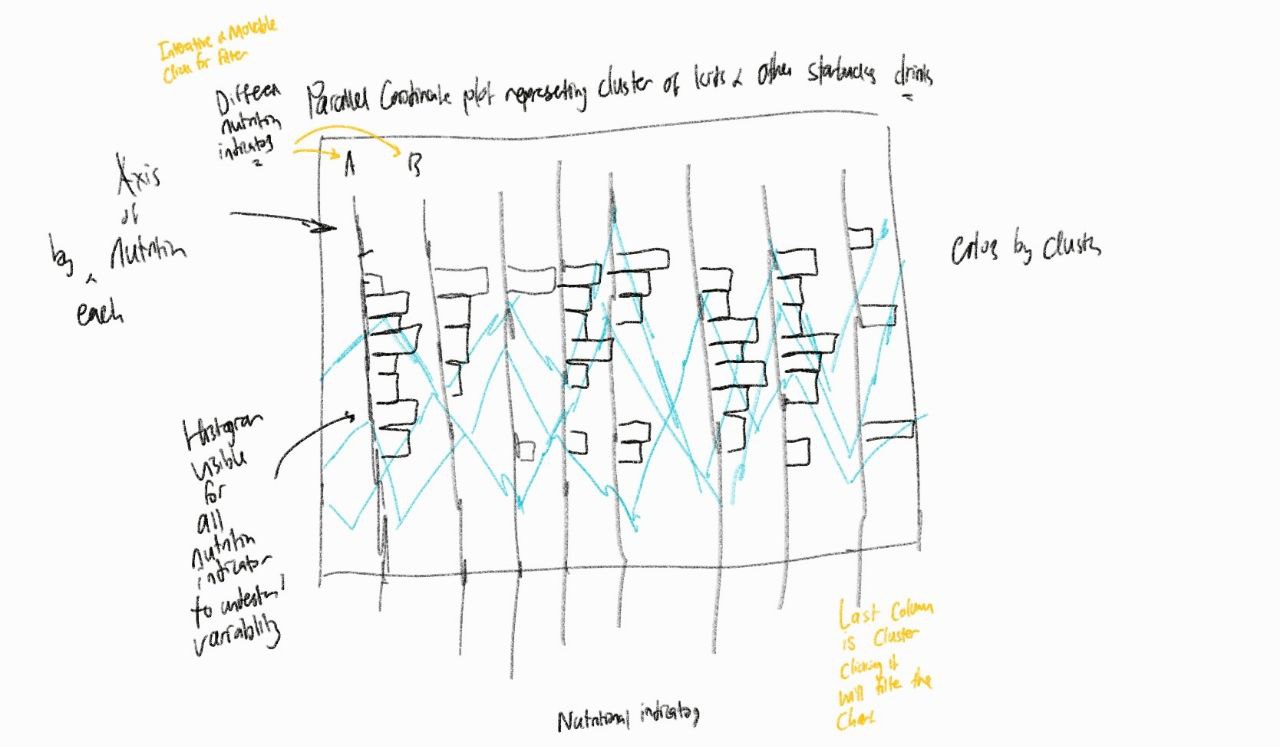 Interative & Movable
Click for filter
Parallel Coordinate plot representing cluster of kids & other starbucks drinks
Differen
nutrition
indicator
A B
Axis
of
by nutrition
each
Color by cluster
Histogram
visible
for
all
nutrition
indicator
to understand
variability
Last Column
is Cluster
Clicking it
will filter the
Chart
Nutritional indicator